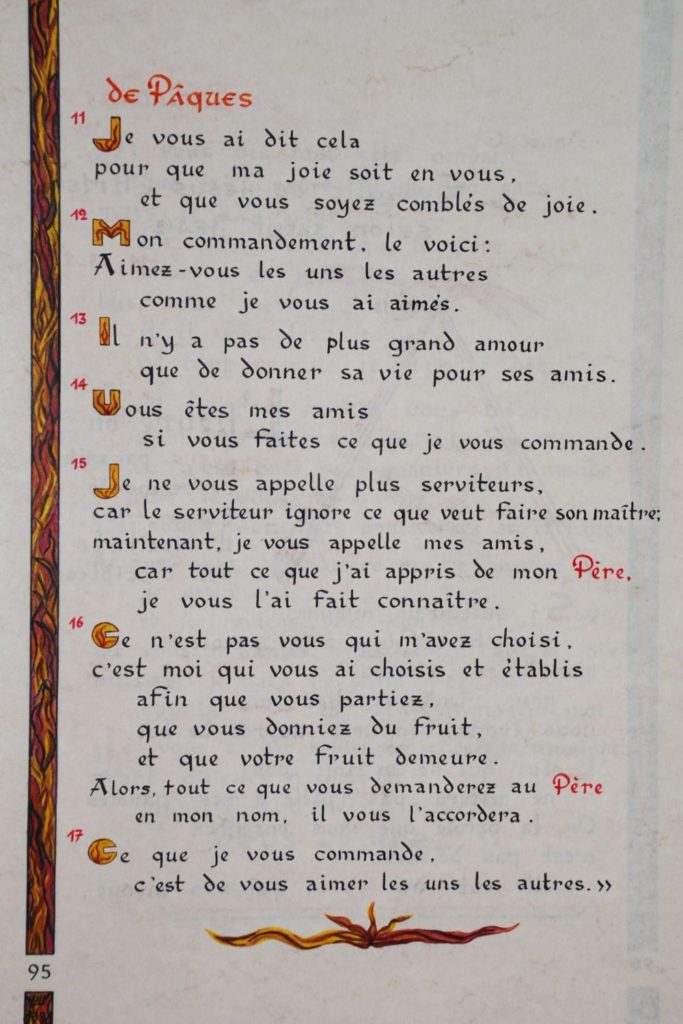 de Pâques
11
Je vous ai dit cela
pour que ma joie soit en vous,
et que vous soyez comblés de joie.
12
Mon commandement, le voici:
Aimez-vous les uns les autres
comme je vous ai aimés.
13
Il n'y a pas de plus grand amour
que de donner sa vie pour ses amis.
14
Vous êtes mes amis
si vous faites ce que je vous commande.
15
Je ne vous appelle plus serviteurs,
car le serviteur ignore ce que veut faire son maître;
maintenant, je vous appelle mes amis,
car tout ce que j'ai appris de mon Père,
je vous l'ai fait connaître.
16
Ce n'est pas vous qui m'avez choisi,
c'est moi qui vous ai choisis et établis
afin que vous partiez,
que vous donniez du fruit,
et que votre fruit demeure.
Alors, tout ce que vous demanderez au Père
en mon nom, il vous l'accordera.
17
Ce que je vous commande,
c'est de vous aimer les uns les autres.»
95